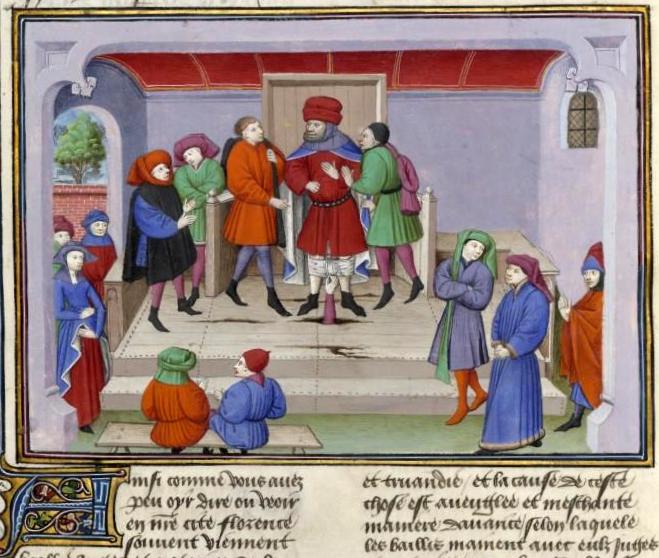 Ainsi comme vous avez
peu oyr dire ou veoir
en nre cite florence
souvent viennent
et truandie / et la cause de ceste
chose est aveuglee et meschante
maniere davarice selon laquele
les baillis mainent avec eulx